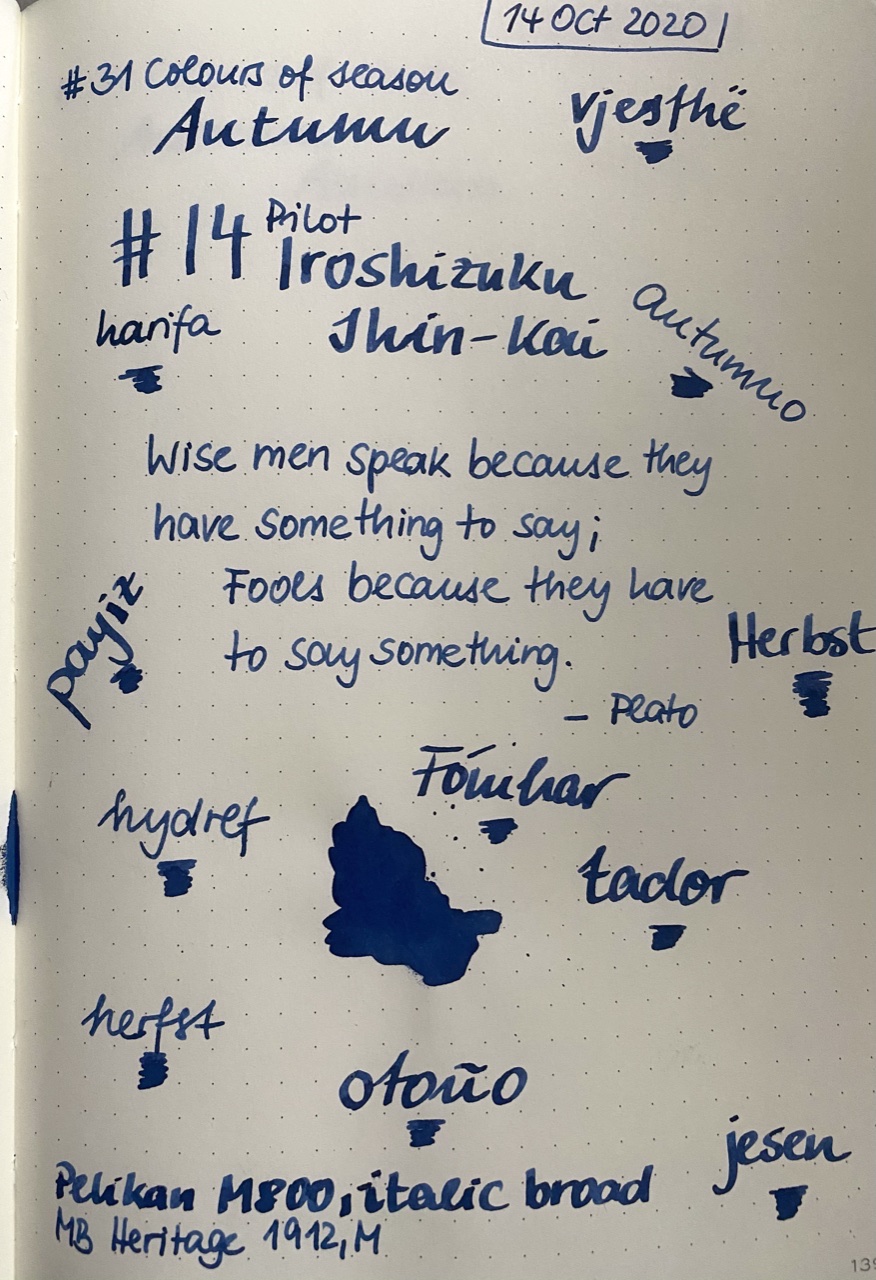 14 Oct 2020
#31 Colours of season
Autumn
vjeshtë
#14 Pilot
Iroshizuku
harifa
Shin-Kai
autunno
Wise men speak because they
have something to say;
Fools because they have
to say something.
payiz
Herbst
- Plato
Fómhar
hydref
tador
herfst
otoño
jesen
Pelikan M800, italic broad
MB Heritage 1912, M
139